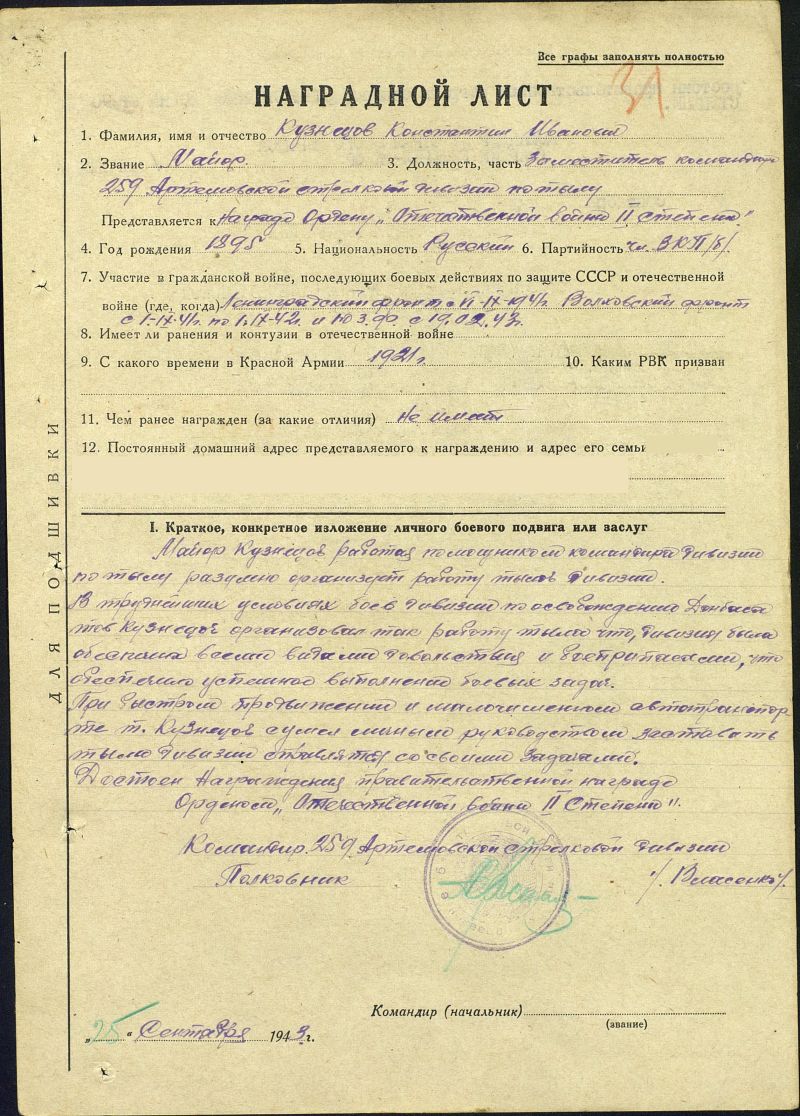 Все графы заполнять полностью
31
НАГРАДНОЙ ЛИСТ
1. Фамилия, имя и отчество Кузнецов Константин Иванович
2. Звание Майор 3. Должность, часть Заместитель командира
259 Артемовской стрелковой дивизии по тылу
Представляется к Награде Ордену „Отечественной войны II степени"
4. Год рождения 1895 5. Национальность Русский 6. Партийность чл. ВКП/б/
7. Участие в гражданской войне, последующих боевых действиях по защите СССР и отечественной
войне (где, когда) Ленинградский фронт с Волховский фронт
по и Ю З.Ф. с 19.02.43г.
8. Имеет ли ранения и контузии в отечественной войне
9. С какого времени в Красной Армии 1921г. 10. Каким РВК призван
11. Чем ранее награжден (за какие отличия) не имеет
12. Постоянный домашний адрес представляемого к награждению и адрес его семьи
I. Краткое, конкретное изложение личного боевого подвига или заслуг
Майор Кузнецов работая помощником командира дивизии
по тылу разумно организует работу тыла дивизии.
В труднейших условиях боев дивизии по освобождению Донбаса
тов Кузнецов организовал так работу тыла что, дивизия была
всеми видами довольствия и боеприпасами, что
обеспечило успешное выполнение боевых задач.
При быстром продвижении и малочисленном автотранспор
те т. Кузнецов сумел личным руководством заставать
тылы дивизии справлятся со своими задачами.
Достоен Награждения правительственной награде
Орденом „Отечественной войны II Степени".
Командир 259 Артемовской стрелковой дивизии
Полковник /Власенко/
ДЛЯ ПОДШИВКИ
Командир (начальник)
(звание)
„25" Сентября 1943г.